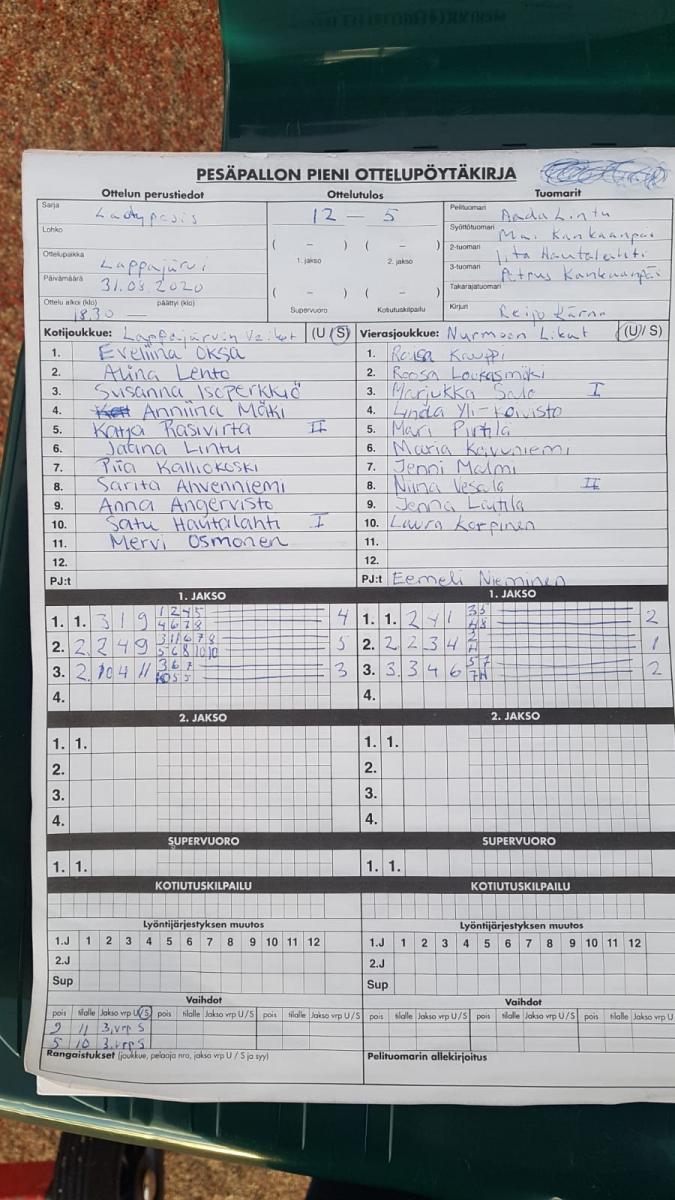 PESÄPALLON PIENI OTTELUPÖYTÄKIRJA
Ottelun perustiedot Ottelutulos Tuomarit
Sarja Ladypesis
Lohko
Ottelupaikka Lappajärvi
Päivämäärä 31.08.2020
Ottelu alkoi (klo) päättyi (klo)
18.30 —
12 – 5
( – ) ( – )
1. jakso 2. jakso
( – ) ( – )
Supervuoro Kotiutuskilpailu
Pelituomari Aada Lintu
Syöttötuomari Mai Kankaanpää
2-tuomari Iita Hautalahti
3-tuomari Petrus Kankaanpää
Takarajatuomari
Kirjuri Reijo Kärnä
Kotijoukkue: Lappajärven Veikot (U / S)
1. Eveliina Oksa
2. Alina Lento
3. Susanna Isoperkkiö
4. Anniina Mäki
5. Katja Rasivirta II
6. Jaana Lintu
7. Piia Kalliokoski
8. Sarita Ahvenniemi
9. Anna Angervisto
10. Satu Hautalahti I
11. Mervi Osmonen
12.
PJ:t
Vierasjoukkue: Nurmoon Likat (U / S)
1. Raisa Kauppi
2. Roosa Loukasmäki
3. Marjukka Salo I
4. Linda Yli-Koivisto
5. Mari Pirtilä
6. Maria Koivuniemi
7. Jenni Malmi
8. Niina Vesala II
9. Jenna Lautila
10. Laura Korpinen
11.
12.
PJ:t Eemeli Nieminen
1. JAKSO
1. 1. 3 1 9 1 2 4 5 4
4 6 7 8
2. 2. 2 4 9 3 11 6 7 8 5
5 6 8 10 10
3. 2. 10 4 11 3 6 7 3
10 5 5
4.
1. JAKSO
1. 1. 2 4 1 3 5 2
4 8
2. 2. 2 3 4 1
3. 3. 3 4 6 5 7 2
4.
2. JAKSO 2. JAKSO
1. 1. 1. 1.
2. 2.
3. 3.
4. 4.
SUPERVUORO SUPERVUORO
1. 1. 1. 1.
KOTIUTUSKILPAILU KOTIUTUSKILPAILU
Lyöntijärjestyksen muutos Lyöntijärjestyksen muutos
1.J 1 2 3 4 5 6 7 8 9 10 11 12 1.J 1 2 3 4 5 6 7 8 9 10 11 12
2.J 2.J
Sup Sup
Vaihdot Vaihdot
pois tilalle Jakso vrp U/S pois tilalle Jakso vrp U/S pois tilalle Jakso vrp U/S pois tilalle Jakso vrp U/S pois tilalle Jakso vrp U/S pois tilalle Jakso vrp U
9 11 3.vrp S
5 10 3.vrp S
Rangaistukset (joukkue, pelaaja nro, jakso vrp U / S ja syy) Pelituomarin allekirjoitus